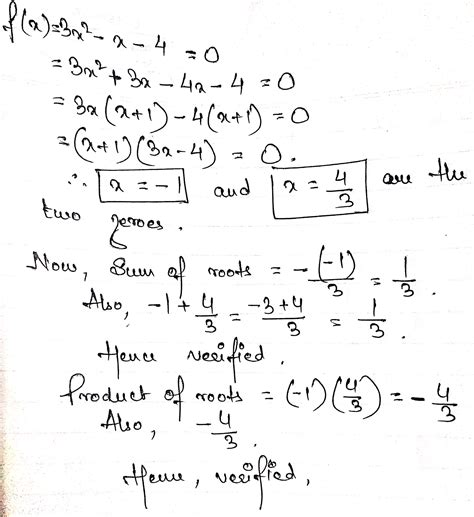 f(x)=3x² - x - 4 = 0
= 3x² + 3x - 4x - 4 = 0
= 3x(x+1) - 4(x+1) = 0
= (x+1)(3x-4) = 0.
∴ x = -1 and x = 4/3 are the
two zeroes.
Now, Sum of roots = -(-1)/3 = 1/3.
Also, -1 + 4/3 = -3+4/3 = 1/3.
Hence verified.
Product of roots = (-1)(4/3) = -4/3
Also, -4/3.
Hence, verified,